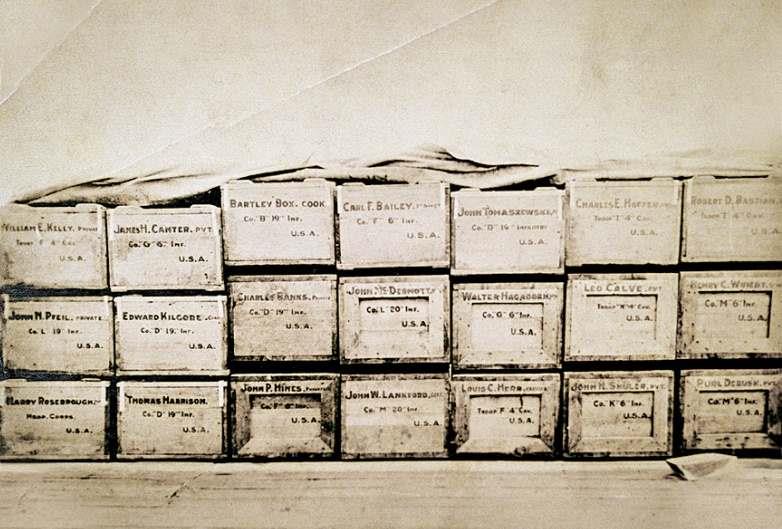 WILLIAM E. KELLY, PRIVATE
TROOP F 4" CAV.
U.S.A.
JAMES H. CANTER, PVT.
CO. "G" 6" INF.
U.S.A.
BARTLEY BOX. COOK
CO. "B" 19" INF.
U.S.A.
CARL F. BAILEY,
CO. "F" 6" INF.
U.S.A.
JOHN TOMASZEWSKI,
CO. "D" 19" INFANTRY
U.S.A.
CHARLES E.
TROOP "I" 4" CAV.
U.S.A.
ROBERT D.
TROOP "I" 4" CAV.
U.S.A.
JOHN N. PFEIL, PRIVATE
CO. L' 19" INF.
U.S.A.
EDWARD KILGORE,
CO. "D" 19" INF.
U.S.A.
CHARLES BANKS,
CO. "D" 19" INF.
U.S.A.
JOHN McDERMOTT,
CO. L 20" INF.
U.S.A.
WALTER HAGADORN,
CO. "G" 6" INF.
U.S.A.
LEO CALVE, PVT.
4" CAV.
U.S.A.
HENRY C.
CO. "M" 6" INF.
U.S.A.
HARRY ROSEBROUGH,
HOSP. CORPS.
U.S.A.
THOMAS HARRISON,
CO. "D" 19" INF.
U.S.A.
JOHN P. HINES,
CO. "F"
U.S.A.
JOHN W. LANKFORD,
CO. "M" 20" INF.
U.S.A.
LOUIS C.
TROOP F 4" CAV.
U.S.A.
JOHN H. SHULER, PVT.
CO. "K" 6" INF.
U.S.A.
DEBUSK, PVT.
CO. "M" 6" INF.
U.S.A.